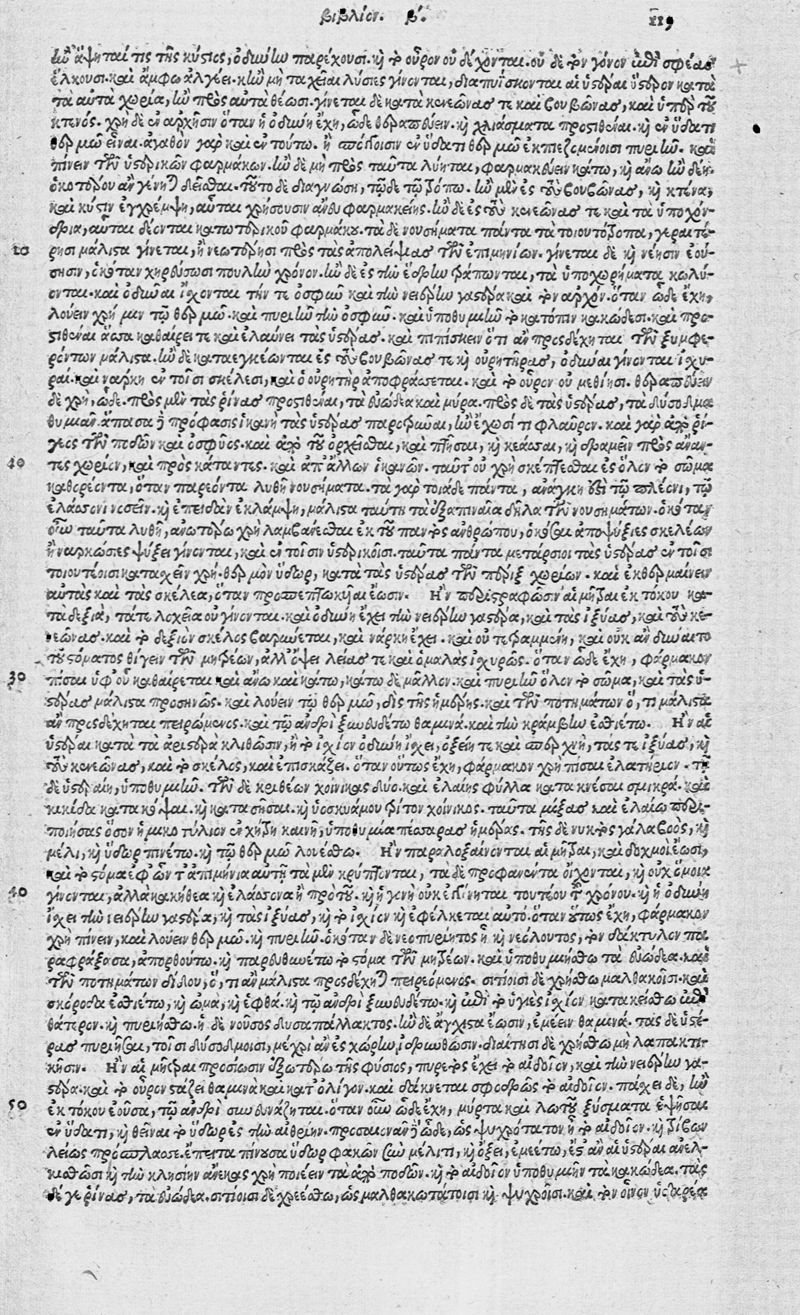 βιβλίον. β΄. 119
ἢν ἅψηταί τις τῆς κύστιος, ὀδύνην παρέχουσι. καὶ τὸ οὖρον οὐ δέχονται. οὐδὲ τὸν γόνον ἐπὶ σφέας
ἕλκουσι. καὶ ἄμφω ἀλγέει. κἢν μὴ ταχεῖαι λύσιες γίνονται, διαπυΐσκονται αἱ ὑστέραι ὕστερον κατὰ
τὰ αὐτὰ χωρία, ἢν πρὸς αὐτὰ θέωσι. γίνεται δὲ κατὰ κενεῶνας τε καὶ βουβῶνας, καὶ ὑπὲρ τοῦ
κτενός. χρὴ δὲ ἐν ἀρχῇσιν ὅταν ἡ ὀδύνη ἔχῃ, ὧδε θεραπεύειν. καὶ χλιάσματα προστιθέναι. καὶ ἐν ὕδατι
θερμῷ εἶναι. ἀγαθὸν γὰρ καὶ ἐν τούτῳ. ἢ σπόγγοισιν ἐν ὕδατι θερμῷ ἐκπιεζομένοισι πυριῆν. καὶ
πίνειν τῶν ὑστερικῶν φαρμάκων. ἢν δὲ μὴ πρὸς ταῦτα λύηται, φαρμακεύειν κάτω, καὶ ἄνω ἢν δέῃ.
ὁκοτέρου ἂν γένηται δεῖσθαι. τοῦτο δὲ διαγνώσῃ, τῷδε τῷ τόπῳ. ἢν μὲν ἐς τοὺς βουβῶνας, καὶ κτένα,
καὶ κύστιν ἐγχρέμψῃ, αὗται χρήσουσιν ἄνω φαρμακείης. ἢν δὲ ἐς τοὺς κενεῶνας τε καὶ τὰ ὑποχόν-
δρια, αὗται δέονται κατωτερικοῦ φαρμάκου. τὰ δὲ νουσήματα πάντα τὰ τοιουτότροπα, γεραιτέ-
20 ρῃσι μάλιστα γίνεται, ἢ νεωτέρῃσι πρὸς τὰς ἀπολείψιας τῶν ἐπιμηνίων. γίνεται δὲ καὶ νέῃσιν ἐού-
σῃσιν, ὁκόταν χηρεύσωσι πουλὺν χρόνον. ἢν δὲ ἐς τὴν ἕδρην ἅπτωνται, τὰ ὑποχωρήματα κωλύ-
ονται. καὶ ὀδύναι ἴσχονται τήν τε ὀσφὺν καὶ τὴν νειαίρην γαστέρα καὶ τὸν ἀρχόν. ὅταν ὧδε ἔχῃ,
λούειν χρή μιν τῷ θερμῷ. καὶ πυριῆν τὴν ὀσφύν. καὶ ὑποθυμιῆν τὸ κατόπιν κακώδεσι. καὶ προ-
στιθέναι ἅσσα καθαίρει τε καὶ ἐλαύνει τὰς ὑστέρας. καὶ πιπίσκειν ὅτι ἂν προσδέχηται τῶν ξυμφε-
ρόντων μάλιστα. ἢν δὲ κατεγκέωνται ἐς τοὺς βουβῶνας τε καὶ οὐρητῆρας, ὀδύναι γίνονται ἰσχυ-
ραί. καὶ νάρκη ἐν τοῖσι σκέλεσι, καὶ ὁ οὐρητὴρ ἀποφράσσεται. καὶ τὸ οὖρον οὐ μεθίησι. θεραπεύειν
δὲ χρὴ, ὧδε. πρὸς μὲν τὰς ῥῖνας προστιθέναι, τὰ εὐώδεα καὶ μύρα. πρὸς δὲ τὰς ὑστέρας, τὰ δύσοδμα
θυμιᾶν. ἅπασα ἡ πρόφασις ἱκανὴ τὰς ὑστέρας παροτρῦναι, ἢν ἔχωσί τι φλαῦρον. καὶ γὰρ ἀπὸ ῥί-
γεος τῶν ποδῶν καὶ ὀσφύος. καὶ ἀπὸ τοῦ ὀρχεῖσθαι, καὶ πτῆσαι, καὶ κεάσαι, καὶ δραμεῖν πρὸς ἄναν-
40 τες χωρίον, καὶ πρὸς κάταντες. καὶ ἀπ' ἄλλων ἱκανῶν. ταῦτ' οὖν χρὴ σκέπτεσθαι ἐς ὅλον τὸ σῶμα
καθορέοντα, ὅταν παρεόντα λυθῇ νουσήματα. τὰ γὰρ τοιάδε πάντα, ἀνάγκη ἐπὶ τῷ πλέονι, τῷ
ἐλάσσονι νοσεῖν. καὶ ἐπειδὰν ἐκλάμψῃ, μάλιστα ταύτῃ τὰ ἐξαπιναῖα δῆλα τῶν νουσημάτων. ὁκόταν
οὖν ταῦτα λυθῇ, ἀνωτέρω χρὴ λαμβάνεσθαι ἐκ τοῦ παντὸς ἀνθρώπου, ὁκόσαι ἀποψύξιες σκελέων
ἢ ναρκώσιες ψύξει γίνονται, καὶ ἐν τοῖσιν ὑστερικοῖσι. ταῦτα πάντα μετάρσιοι τὰς ὑστέρας ἐν τοῖσι
τοιουτέοισι καταχεῖν χρή. θερμὸν ὕδωρ, κατὰ τὰς ὑστέρας τῶν πέριξ χωρίων. καὶ ἐκθερμαίνειν
αὐτὰς καὶ τὰς σκέλεα, ὅταν προσπεπτωκυῖαι ἔωσιν. Ἢν περιστραφῶσιν αἱ μῆτραι ἐκ τόκου κα-
τὰ δεξιὰ, τά τε λοχεῖα οὐ γίνονται. καὶ ὀδύνη ἔχει τὴν νειαίρην γαστέρα, καὶ τὰς ἰξύας, καὶ τοὺς κε-
νεῶνας. καὶ τὸ δεξιὸν σκέλος βαρύνεται, καὶ νάρκη ἔχει. καὶ οὔτε ψαμμένη, καὶ οὐκ ἂν δύναιτο
τοῦ στόματος θίγειν τῶν μητρέων, ἀλλ' ὄψει λείας τε καὶ ὁμαλὰς ἰσχυρῶς. ὅταν ὧδε ἔχῃ, φάρμακον
30 πῖσαι ὑφ' οὗ καθαίρεται καὶ ἄνω καὶ κάτω, κάτω δὲ μᾶλλον. καὶ πυριῆν ὅλον τὸ σῶμα, καὶ τὰς ὑ-
στέρας μάλιστα προσηνῶς. καὶ λούειν τῷ θερμῷ, δὶς τῆς ἡμέρης. καὶ τῶν ποτημάτων ὅ, τι μάλιστα
ἂν προσδέχηται πειρώμενος. καὶ τῷ ἀνδρὶ ξυνευδέτω θαμινά. καὶ τὴν κράμβην ἐσθιέτω. Ἢν αἱ
ὑστέραι κατὰ τὰ ἀριστερὰ κλιθῶσιν, ἢ τὸ ἰσχίον ὀδύνη ἴσχει, ὀξείη τε καὶ σπερχνὴ, τάς τε ἰξύας, καὶ
τοὺς κενεῶνας, καὶ τὸ σκέλος, καὶ ἐπισκάζει. ὅταν οὕτως ἔχῃ, φάρμακον χρὴ πῖσαι ἐλατήριον. τῇ
δὲ ὑστεραίῃ, ὑποθυμιῆν. τῶν δὲ κριθέων χοίνικας δύο. καὶ ἐλαίης φύλλα κατακνέσαι σμικρά. καὶ
κικίδα κατακόψαι. καὶ κατασῆσαι. καὶ ὑοσκυάμου τρίτον χοίνικος. ταῦτα μίξας καὶ ἐλαίῳ περι-
ποιήσας ὅσον ἡμικοτύλιον ἐν χήτρῃ καινῇ, ὑποθυμία τέσσαρας ἡμέρας. τῆς δὲ νυκτὸς γάλα βοὸς, καὶ
μέλι, καὶ ὕδωρ πινέτω. καὶ τῷ θερμῷ λουέσθω. Ἢν παραλοξαίνονται αἱ μῆτραι, καὶ δοχμοὶ ἔωσι,
καὶ τὸ στόμα ἐφ' ὧν τ' ἀπιμήνια αὐτῇ τὰ μὲν κρύπτονται, τὰ δὲ προφανέντα οἴχονται, καὶ οὐχ ὅμοια
40 γίνονται, ἀλλὰ κακήθεα καὶ ἐλάσσονα ἢ πρὸ τοῦ. καὶ ἡ γονὴ οὐκ ἐγγίνηται τουτέου τοῦ χρόνου. καὶ ἡ ὀδύνη
ἴσχει τὴν νειαίρην γαστέρα, καὶ τὰς ἰξύας, καὶ τὸ ἰσχίον καὶ ἐφέλκεται αὐτό. ὅταν οὕτως ἔχῃ, φάρμακον
χρὴ πίνειν, καὶ λούειν θερμῷ. καὶ πυριῆν. ὁκόταν δὲ νεοπυρίητος ᾖ καὶ νεόλουτος, τὸν δάκτυλον πα-
ραφράξασα, ἀπορθούτω. καὶ παρευθυνέτω τὸ στόμα τῶν μητρέων. καὶ ὑποθυμιήσθω τὰ εὐώδεα. καὶ
τῶν ποτημάτων δίδου, ὅ, τι ἂν μάλιστα προσδέχηται πειρεόμενος. σιτίοισι δὲ χρήσθω μαλθακοῖσι. καὶ
σκόροδα ἐσθιέτω, καὶ ὠμὰ, καὶ ἑφθά. καὶ τῷ ἀνδρὶ ξυνευδέτω. καὶ ἐπὶ τὸ ὑγιὲς ἰσχίον κατακείσθω ἐπὶ
θάτερον. καὶ πυριήσθω. ἡ δὲ νοῦσος δυσαπάλλακτος. ἢν δὲ ἄγχιστα ἔωσιν, ἐμέειν θαμινά. τὰς δὲ ὑστέ-
ρας πυριῆσαι, τοῖσι δυσόδμοισι, μέχρι ἂν ἐς χώρην, ἱδρυνθῶσιν. διαίτῃσι δὲ χρήσθω μὴ λαπακτι-
κῇσιν. Ἢν αἱ μῆτραι προσίωσιν ἐξωτέρω τῆς φύσιος, πυρετὸς ἔχει τὸ αἰδοῖον, καὶ τὴν νειαίρην γα-
στέρα. καὶ τὸ οὖρον στάζει θαμινὰ καὶ κατ' ὀλίγον. καὶ δάκνεται σφοδρῶς τὸ αἰδοῖον. πάσχει δὲ, ἢν
50 ἐκ τόκου ἐοῦσα, τῷ ἀνδρὶ συνευνάζηται. ὅταν οὖν ὧδε ἔχῃ, μύρτα καὶ λωτοῦ ξύσματα ἑψῆσαι
ἐν ὕδατι, καὶ θεῖναι τὸ ὕδωρ ἐς τὴν αἰθρίην. προσαιονᾶν ᾗ ὧδε, ὡς ψυχρότατον ἢ τὸ αἰδοῖον. καὶ τρίβων
λείως προσπλάσσε. ἔπειτα πίνουσα ὕδωρ φακῶν ξὺν μέλιτι, καὶ ὄξει, ἐμείτω, ἔστ' ἂν αἱ ὑστέραι ἀνελ-
κυσθῶσι καὶ τὴν κλησίην ἄνεκας χρὴ ποιέειν τὰ ἀπὸ ποδῶν. καὶ τὸ αἰδοῖον ὑποθυμιῆν τὰ κακώδεα. τὰς
δέ γε ῥῖνας, τὰ εὐώδεα. σιτίοισι δὲ χρεέσθω, ὡς μαλθακωτάτοισι καὶ ψυχροῖσι. καὶ τὸν οἶνον ὑδαρέα